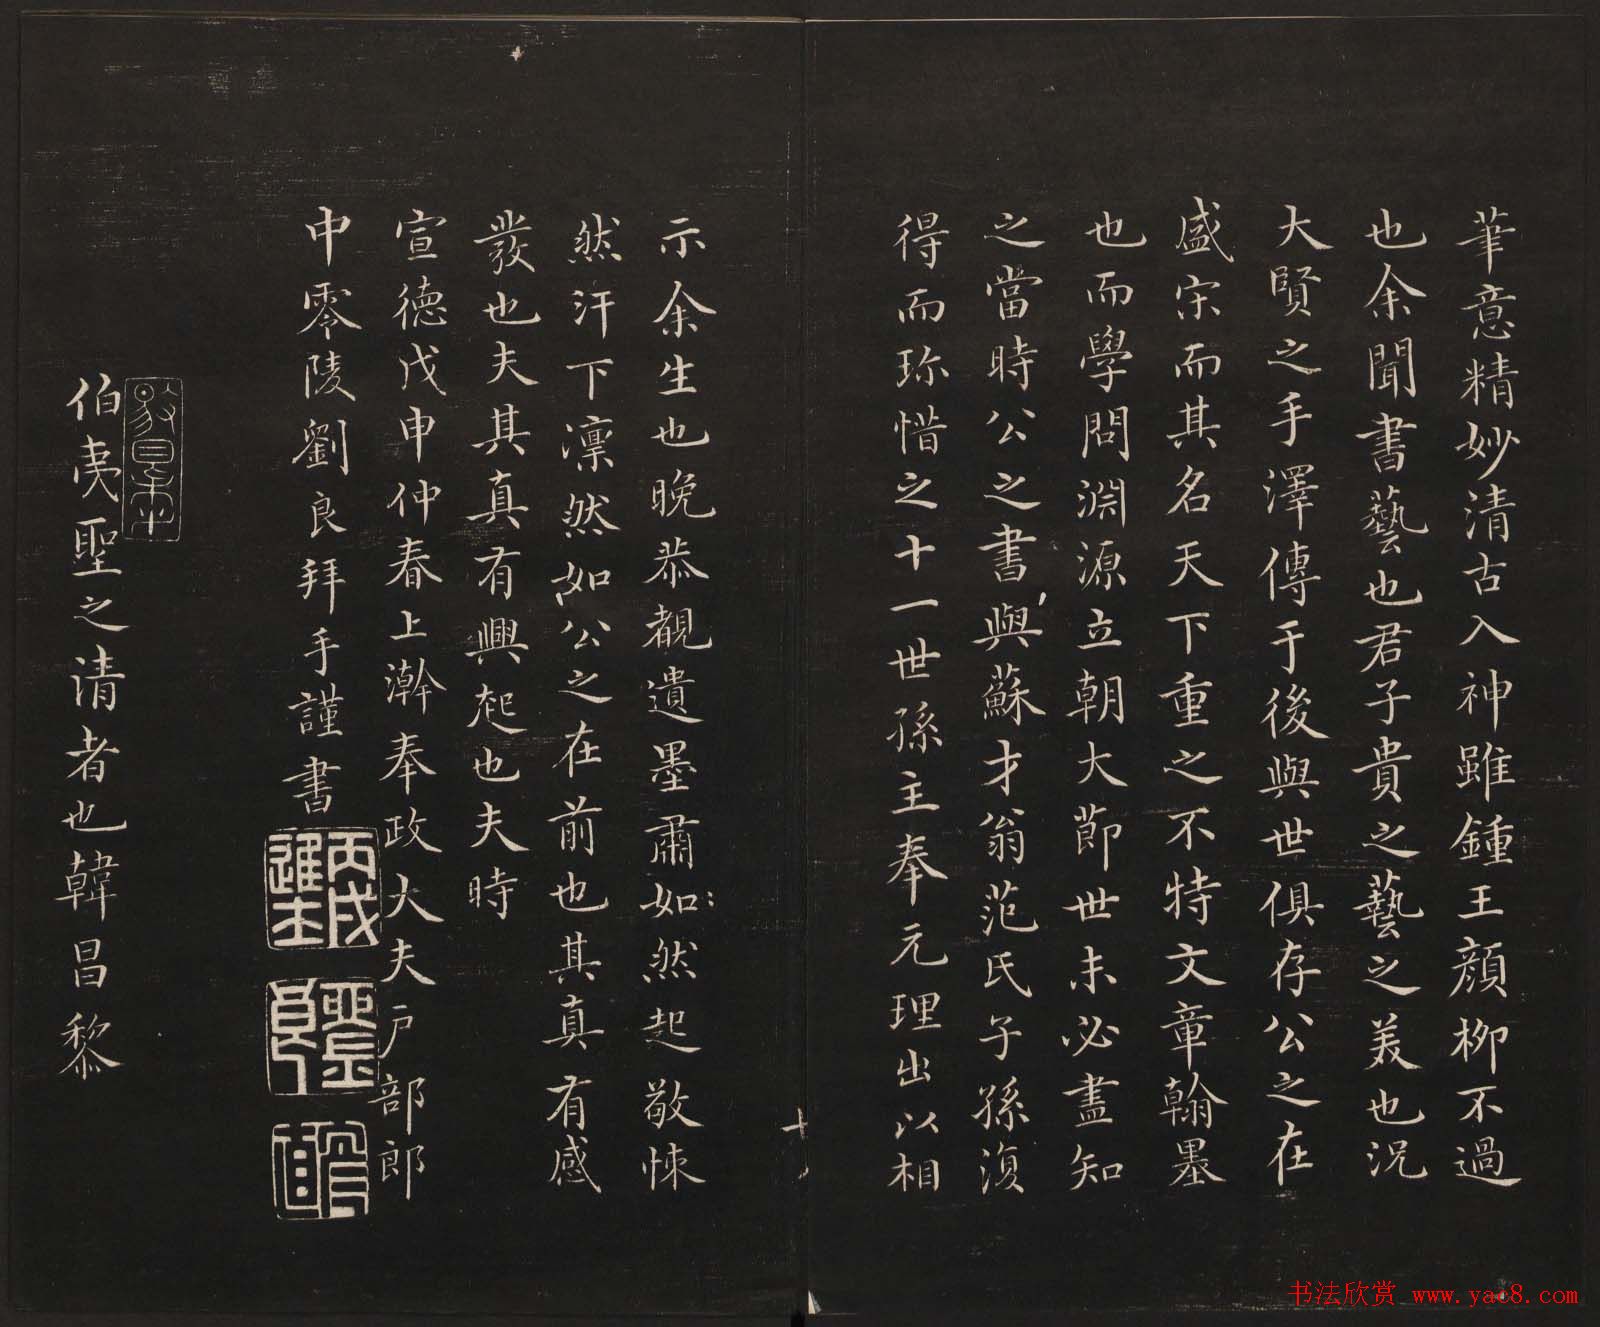 筆意精妙清古入神雖鍾王顔柳不過
也余聞書藝也君子貴之藝之美也况
大賢之手澤傳于後與世俱存公之在
盛宋而其名天下重之不特文章翰墨
也而學問淵源立朝大節世未必盡知
之當時公之書與蘇才翁范氏子孫復
得而珎惜之十一世孫主奉元理出以相
示余生也晚恭覩遺墨肅如然起敬悚
然汗下凛然如公之在前也其真有感
發也夫其真有興起也夫時
宣德戊申仲春上澣奉政大夫户部郎
中零陵劉良拜手謹書
丙戌進士
伯夷聖之清者也韓昌黎
书法欣赏 www.yac8.com